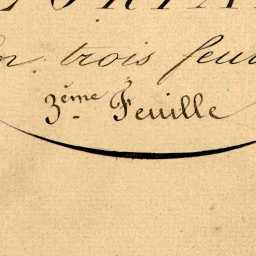 en trois feui
3ème Feuille